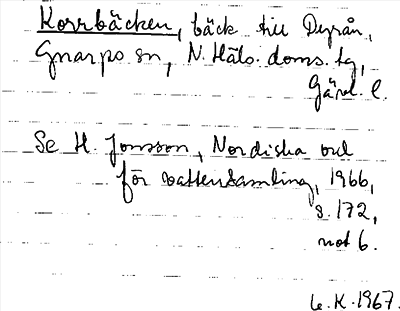 Korrbäcken, bäck till Dyrån,
Gnarps sn, N. Häls. doms. tg,
Gävl. l.
Se H. Jonsson, Nordiska ord
för vattensamling, 1966,
s. 172,
not 6.
L. K. 1967.